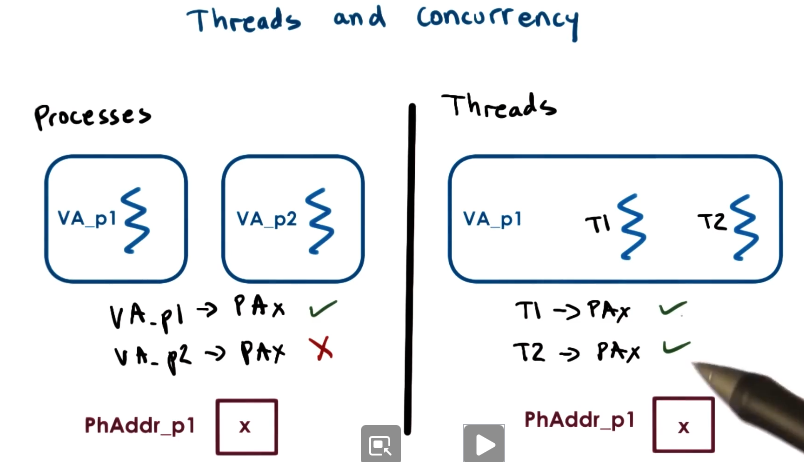 Threads and Concurrency
Processes
VA_p1
VA_p2
VA_p1 → PAx ✓
VA_p2 → PAx X
PhAddr_p1 x
Threads
VA_p1 T1 T2
T1 → PAx ✓
T2 → PAx ✓
PhAddr_p1 x